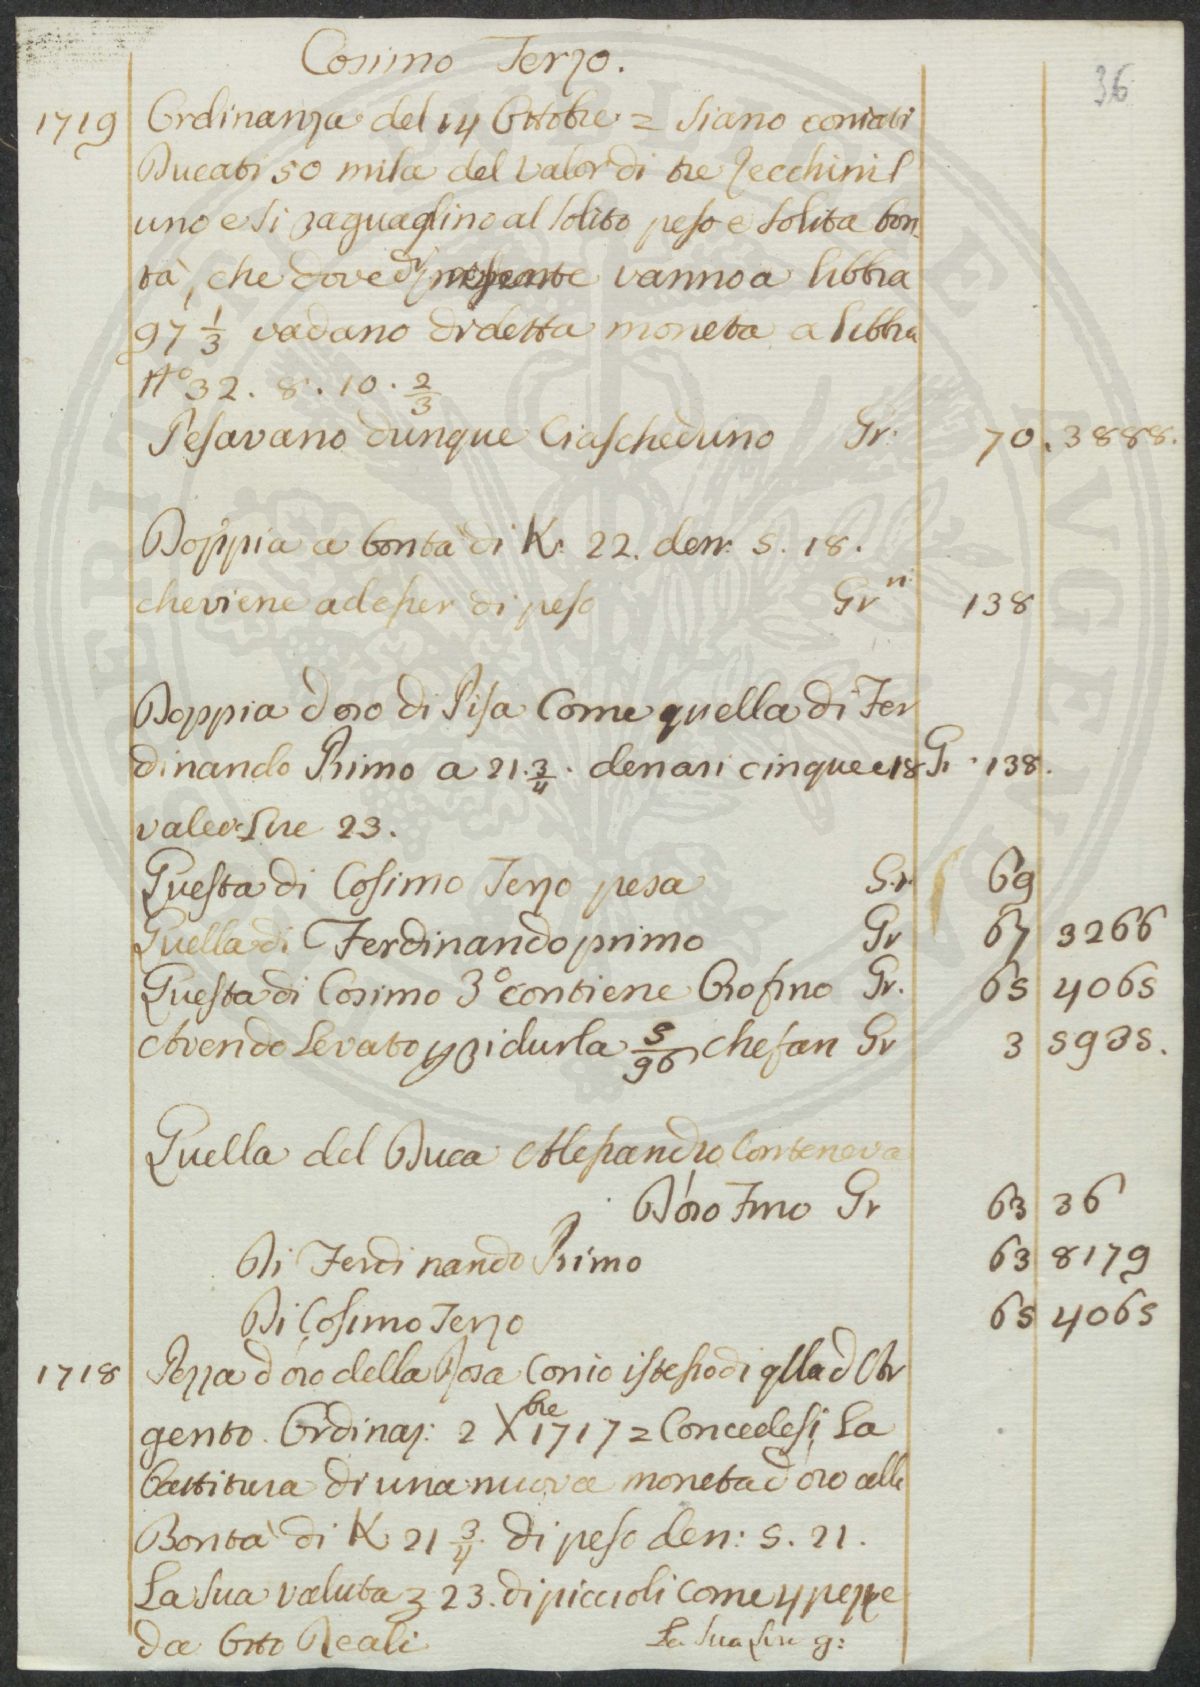 36
Cosimo Terzo.
1719 Ordinanza del 14 Ottobre = Siano coniati
Ducati 50 mila del valor di tre Zecchini l
uno e si raguaglino al solito peso e solita bon
tà, che dove vanno a libbra
97 1/3 vadano di detta moneta a libbra
N.° 32. 8. 10. 2/3
Pesavano dunque Ciascheduno Gr: 70. 3888.
Doppia a bontà di K. 22. den: 5. 18.
che viene ad esser di peso Gr.ni 138
Doppia d'oro di Pisa Come quella di Fer
dinando Primo a 21. 3/4. denari cinque e 18 Gr. 138.
valer Lire 23.
Questa di Cosimo Terzo pesa Gr. 69
Quella di Ferdinando primo Gr 67 3266
Questa di Cosimo 3° contiene Oro fino Gr. 65 4065
Avendo Levato p ridurla 5/96 che fan Gr 3 5935.
Quella del Duca Alessandro Conteneva
D'oro Fino Gr 63 36
Di Ferdinando Primo 63 8179
Di Cosimo Terzo 65 4065
1718 Pezza d'oro della Rosa Conio istesso di qlla d'Ar
gento. Ordinaz: 2 Xbre 1717 = Concedesi La
battitura di una nuova moneta d'oro alla
Bontà di K 21 3/4. di peso den: 5. 21.
La sua valuta 23. di piccioli come 4 pezze
da Otto Reali
La sua Lira g: